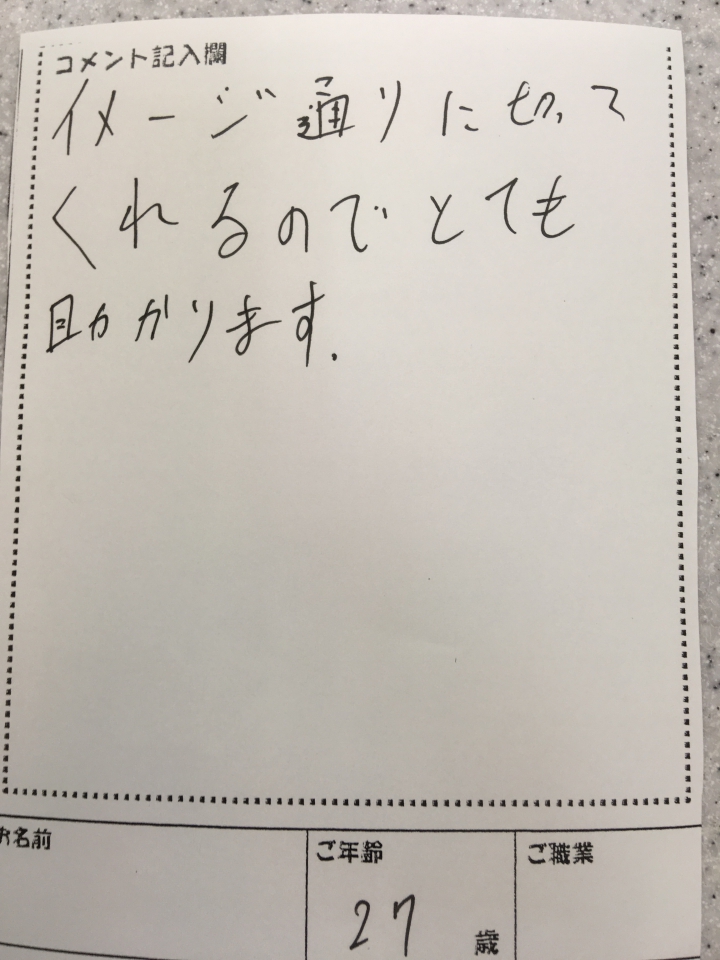 コメント記入欄
イメージ通りに切って
くれるのでとても
助かります.
お名前
ご年齢
ご職業
27 歳